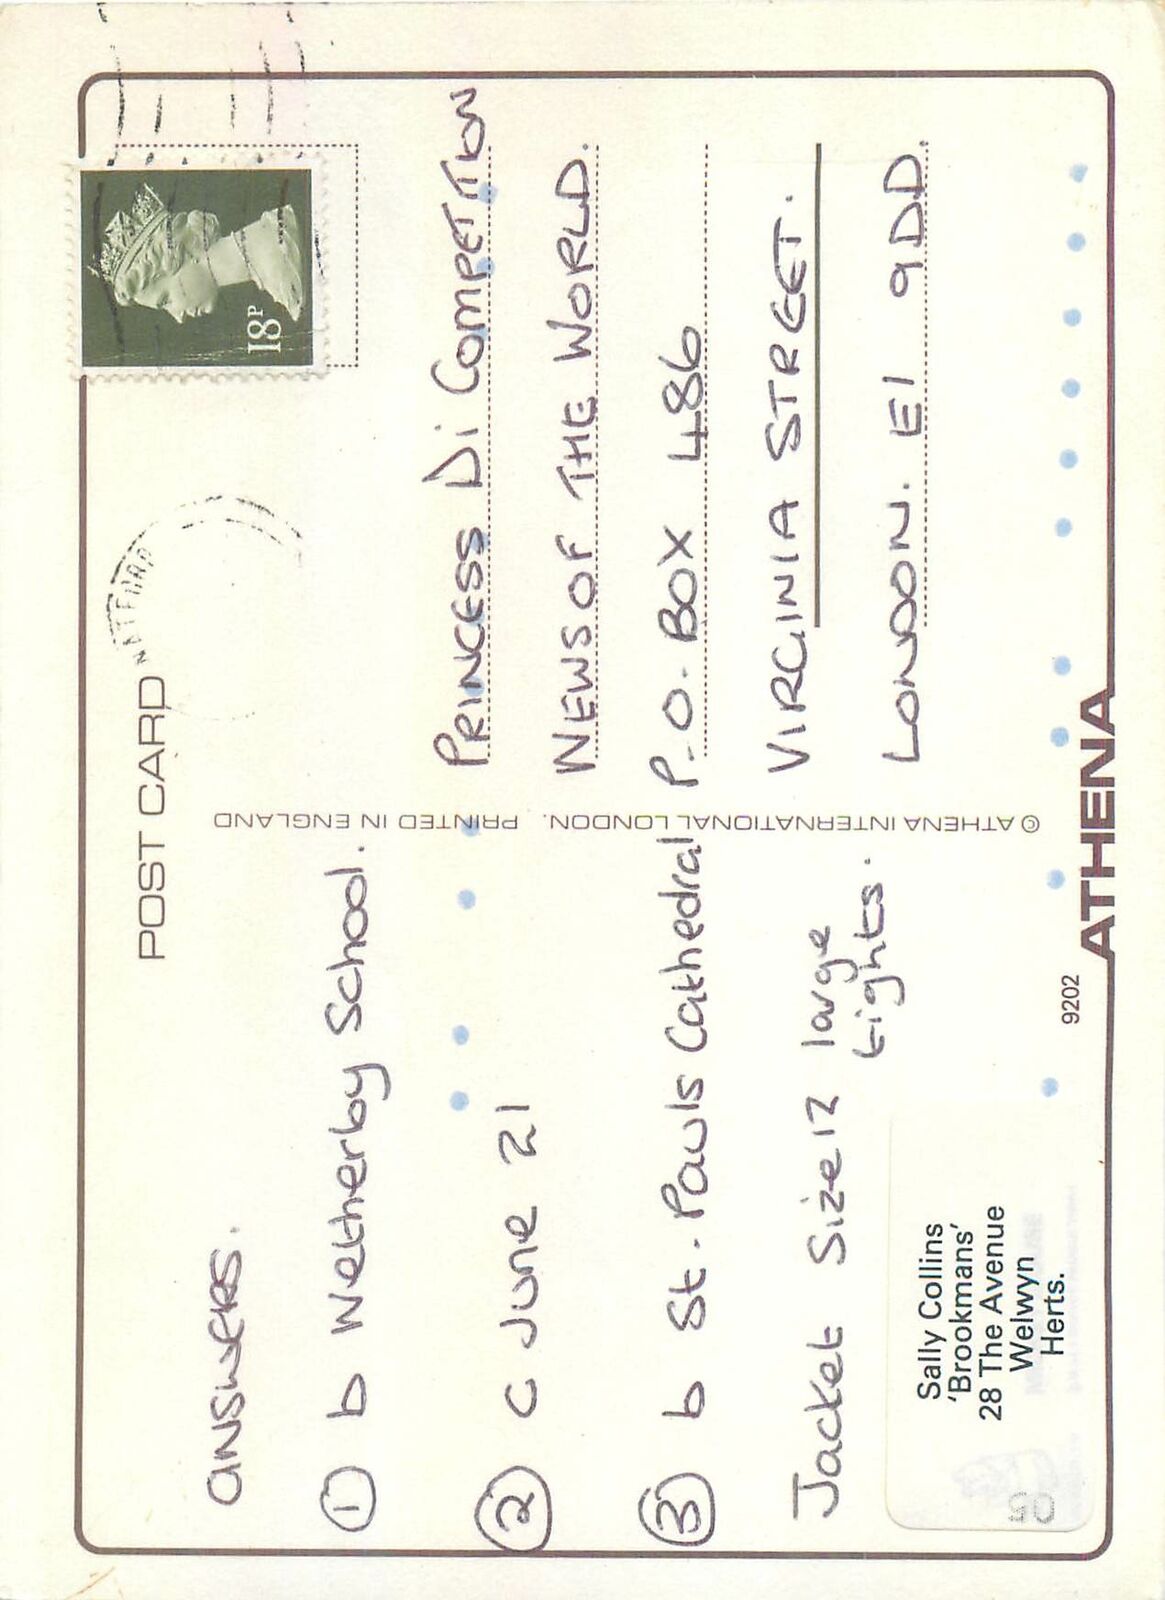 POST CARD
WATFORD
18P
answers.
① b Wetherby School.
② c June 21
③ b St. Pauls Cathedral
Jacket Size 12 large
tights.
Sally Collins
'Brookmans'
28 The Avenue
Welwyn
Herts.
© ATHENA INTERNATIONAL LONDON. PRINTED IN ENGLAND
PRINCESS Di COMPETITION
NEWS OF THE WORLD.
P.O. BOX 486
VIRGINIA STREET.
LONDON. E1 9DD.
9202
ATHENA